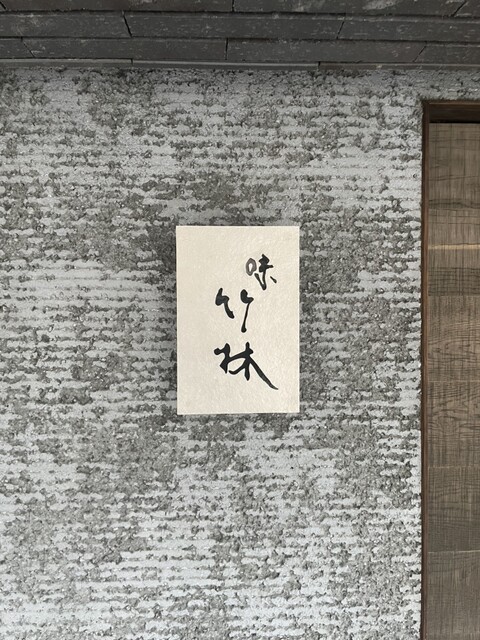 味
竹林